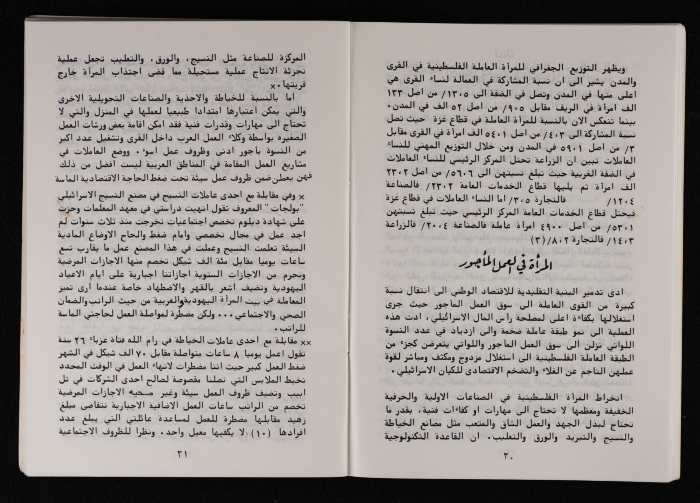 ويظهر التوزيع الجغرافي للمرأة العاملة الفلسطينية في القرى
والمدن يشير الى ان نسبة المشاركة في العمالة لنساء القرى هي
اعلى منها في المدن وتصل في الضفة الى ١٣٠٥/ من اصل ١٣٣
الف امرأة في الريف مقابل ٩٠٥/ من اصل ٥٢ الف في المدن٠
بينما تنعكس الان بالنسبة للمرأة العاملة في قطاع غزة حيث تصل
نسبة المشاركة الى ٤٠٣/ من اصل ٥٤٠١ الف امرأة في القرى مقابل
٣/ من اصل ٥٩٠١ في المدن ومن خلال التوزيع المهني للنساء
العاملات تبين ان الزراعة تحتل المركز الرئيسي للنساء العاملات
في الضفة الغربية حيث تبلغ نسبتهن الى ٥٦٠٦/ من اصل ٢٣٠٢
الف امرأة ثم يليها قطاع الخدمات العامة ٢٣٠٢/ فالصناعة
١٢٠٤/ فالتجارة ٣٠٥/ اما النساء العاملات في قطاع غزة
فيحتل قطاع الخدمات العامة المركز الرئيسي حيث تبلغ نسبتهن
٥٣٠١/ من اصل ٤٩٠٠ امرأة عاملة فالصناعة ٢٠٠٤/ فالزراعة
١٤٠٣/ فالتجارة ٨٠٢/(٣)
المرأة في العمل المأجور
ادى تدمير البنية التقليدية للاقتصاد الوطني الى انتقال نسبة
كبيرة من القوى العاملة الى سوق العمل المأجور حيث جرى
استغلالها بكفاءة اعلى لمصلحة رأس المال الاسرائيلي، ادت هذه
العملية الى نمو طبقة عاملة ضخمة والى ازدياد في عدد النسوة
اللواتي نزلن الى سوق العمل المأجور واللواتي يتعرضن كجزء من
الطبقة العاملة الفلسطينية الى استغلال مزدوج ومكثف ومباشر لقوة
عملهن الناجم عن الغلاء والتضخم الاقتصادي للكيان الاسرائيلي٠
انخراط المرأة الفلسطينية في الصناعات الاولية والحرفية
الخفيفة ومعظمها لا تحتاج الى مهارات او كفاءات فنية، بقدر ما
تحتاج لبذل الجهد والعمل الشاق والمتعب مثل مصانع الخياطة
والنسيج والتبريد والورق والتعليب٠ ان القاعدة التكنولوجية
٣٠
المركزة للصناعة مثل النسيج، والورق، والتعليب تجعل عملية
تجزئة الانتاج عملية مستحيلة مما قضى اجتذاب المرأة خارج
قريتها٠×
اما بالنسبة للخياطة والاحذية والصناعات التحويلية الاخرى
والتي يمكن اعتبارها امتدادا طبيعيا لعملها في المنزل والتي لا
تحتاج الى مهارات وقدرات فنية فقد امكن اقامة بعض ورشات العمل
الصغيرة بواسطة وكلاء العمل العرب داخل القرى وتشغيل عدد اكبر
من النسوة بأجور ادنى وظروف عمل اسوء٠ ووضع العاملات في
مشاريع العمل المقامة في المناطق العربية ليست افضل من ذلك
فهن يعملن ضمن ظروف عمل سيئة تحت ضغط الحاجة الاقتصادية الماسة
× وفي مقابلة مع احدى عاملات النسيج في مصنع النسيج الاسرائيلي
"بولجات" المعروف تقول انهيت دراستي في معهد المعلمات وحزت
على شهادة دبلوم تخصص اجتماعيات تخرجت منذ ثلاث سنوات لم
اجد عمل في مجال تخصصي وامام ضغط والحاح الاوضاع المادية
السيئة تعلمت النسيج وعملت في هذا المصنع عمل ما يقارب تسع
ساعات يوميا مقابل مئة الف شيكل تخصم منها الاجازات المرضية
ونحرم من الاجازات السنوية اجازاتنا اجبارية على ايام الاعياد
اليهودية وتضيف اشعر بالقهر والاضطهاد خاصة عندما ارى تميز
المعاملة في بيت المرأة اليهودية والعربية من حيث الراتب والضمان
الصحي والاجتماعي٠٠٠ ولكن مضطرة لمواصلة العمل لحاجتي الماسة
للراتب٠
×× مقابلة مع احدى عاملات الخياطة في رام الله فتاة عزباء ٢٦ سنة
تقول اعمل يوميا ٨ ساعات متواصلة مقابل ٧٠ الف شيكل في الشهر
ضغط العمل كبير حيث اننا مضطرات لانهاء العمل في الوقت المحدد
نخيط الملابس التي تصلنا مقصوصة لصالح احدى الشركات في تل
ابيب وتضيف ظروف العمل سيئة وغير صحيه الاجازات المرضية
تخصم من الراتب ساعات العمل الاضافية الاجبارية نتقاضى مبلغ
زهيد مقابلها مضطرة للعمل لمساعدة عائلتي التي يبلغ عدد
افرادها (١٠) لا يكفيها معيل واحد٠ ونظرا للظروف الاجتماعية
٣١